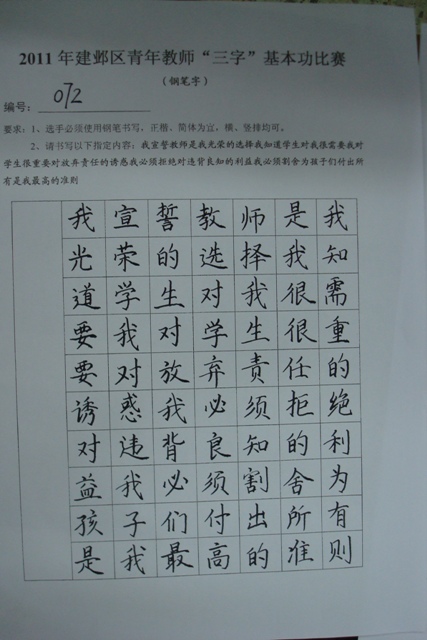 2011 年建邺区青年教师“三字”基本功比赛
（钢笔字）
编号： 072
要求：1、选手必须使用钢笔书写，正楷、简体为宜，横、竖排均可。
2、请书写以下指定内容：我宣誓教师是我光荣的选择我知道学生对我很需要我对
学生很重要对放弃责任的诱惑我必须拒绝对违背良知的利益我必须割舍为孩子们付出所
有是我最高的准则
我宣誓教师是我
光荣的选择我知
道学生对我很需
要我对学生很重
要对放弃责任的
诱惑我必须拒绝
对违背良知的利
益我必须割舍为
孩子们付出所有
是我最高的准则